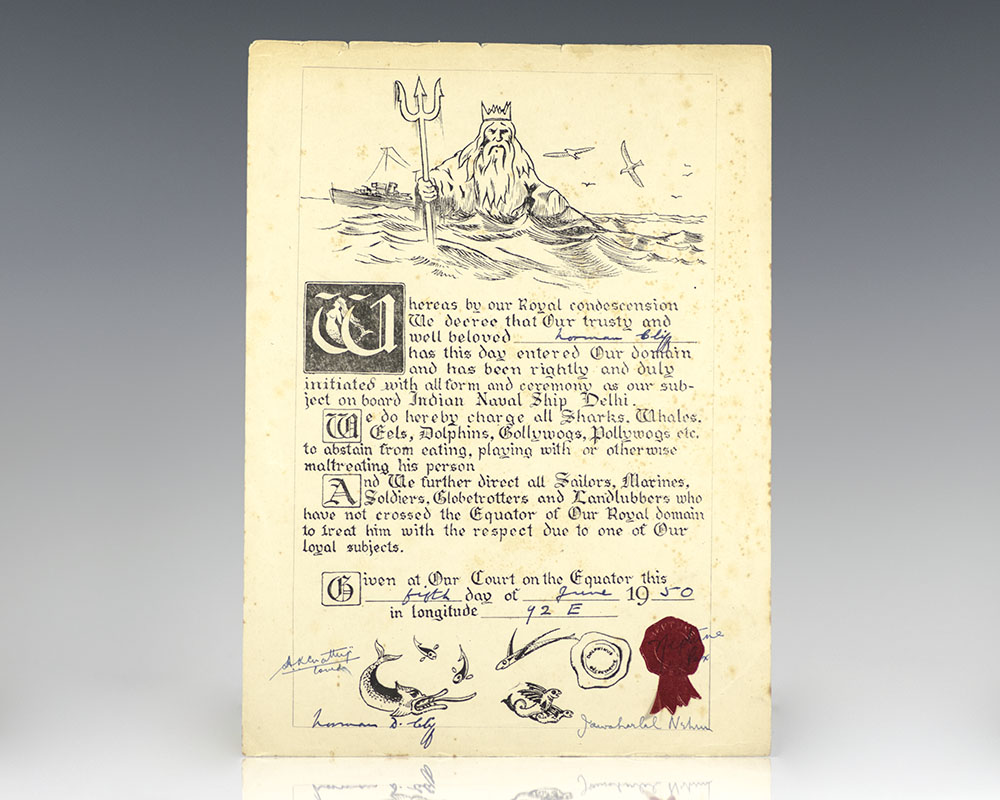 Whereas by our Royal condescension
We decree that Our trusty and
well beloved Norman Cliff
has this day entered Our domain
and has been rightly and duly
initiated with all form and ceremony as our sub-
ject on board Indian Naval Ship Delhi.
We do hereby charge all Sharks, Whales,
Eels, Dolphins, Gollywogs, Pollywogs etc.
to abstain from eating, playing with or otherwise
maltreating his person
And We further direct all Sailors, Marines,
Soldiers, Globetrotters and Landlubbers who
have not crossed the Equator of Our Royal domain
to treat him with the respect due to one of Our
loyal subjects.
Given at Our Court on the Equator this
fifth day of June 1950
in longitude 92 E
Norman D. Cliff
Jawaharlal Nehru